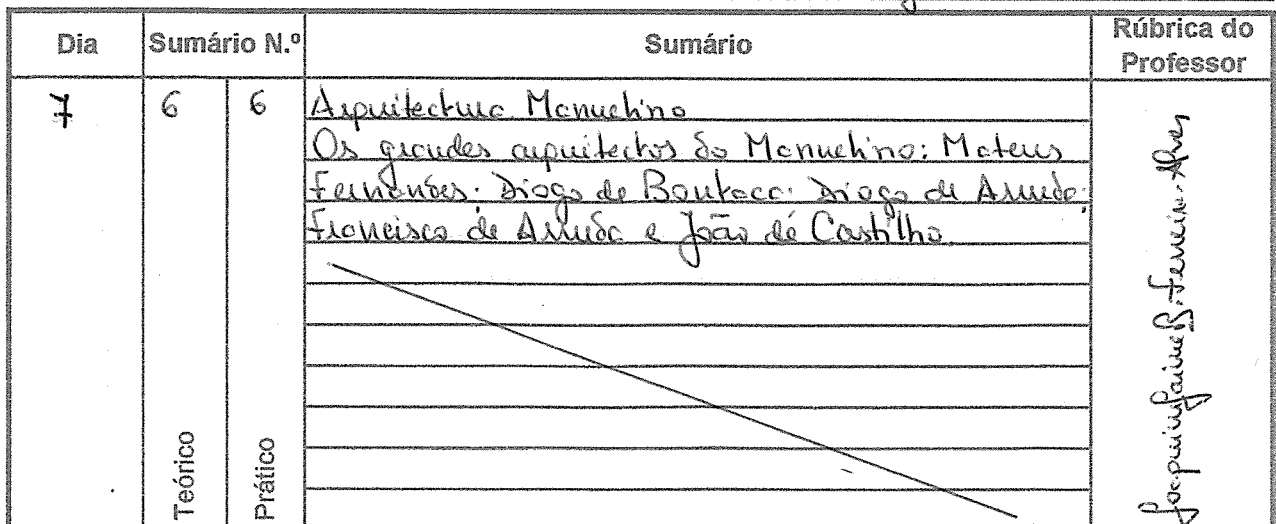 Dia Sumário N.º Sumário Rúbrica do Professor
7 6 6 Arquitectura Manuelina
Os grandes arquitectos do Manuelino: Mateus
Fernandes; Diogo de Boutaca; Diogo de Arruda;
Francisco de Arruda e João de Castilho.
Teórico Prático
Joaquim Jaime B. Ferreira-Alves